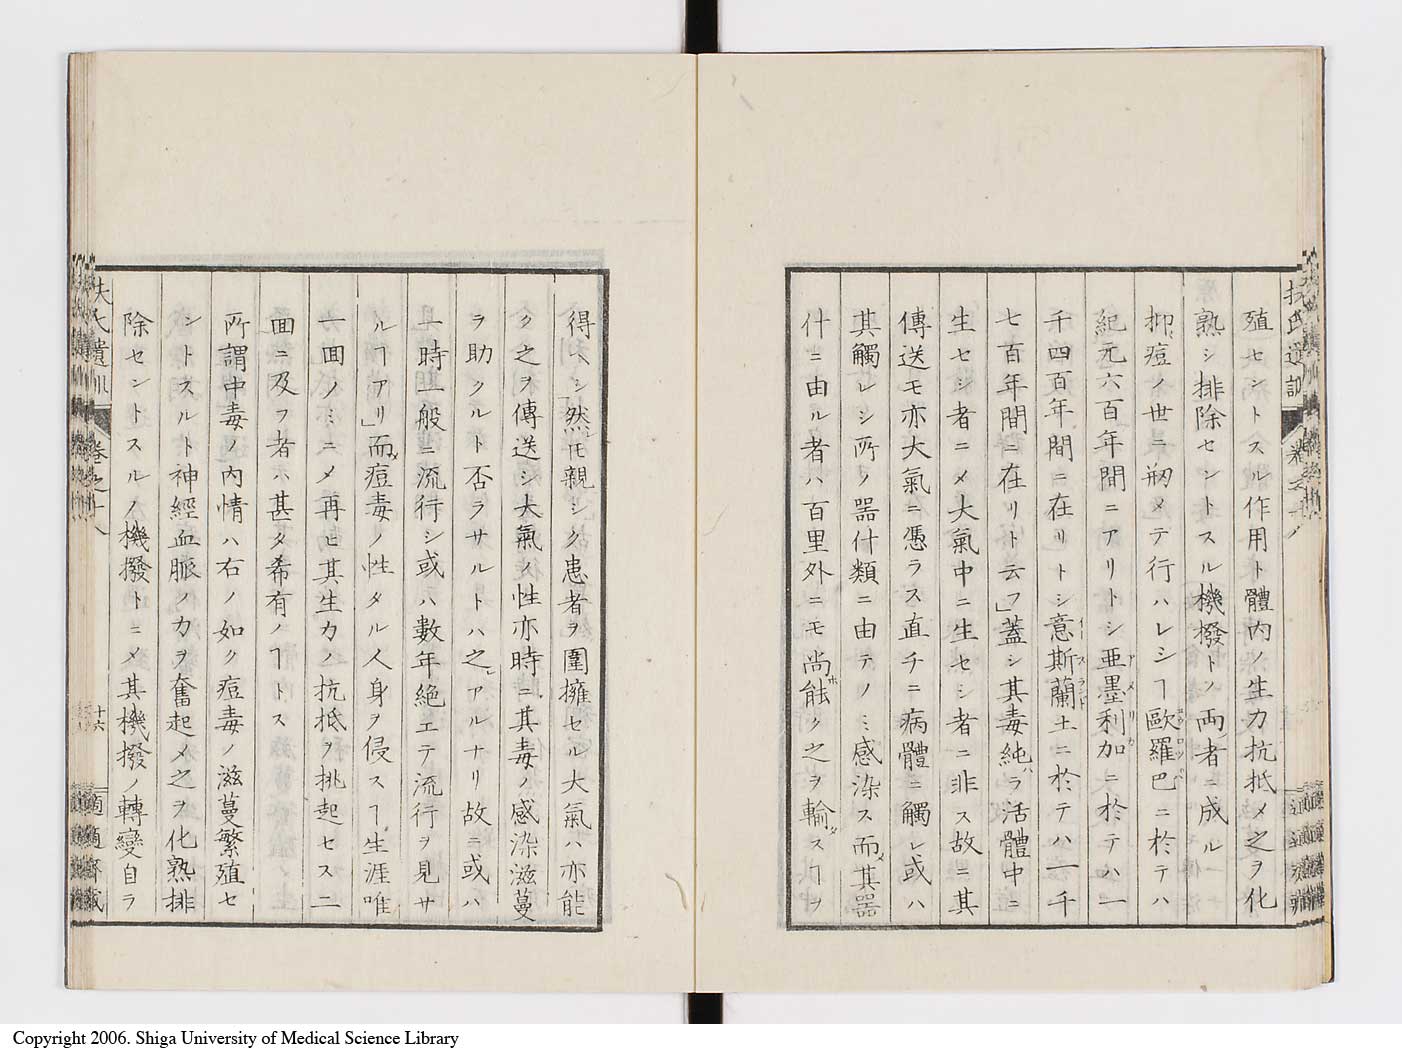 殖セシトスル作用ト體内ノ生力抗抵〆之ヲ化
熟シ排除セントスル機撥トノ両者ニ成ル
抑痘ノ世ニ剏メテ行ハレシヿ歐羅巴ニ於テハ
紀元六百年間ニアリトシ亜墨利加ニ於テハ一
千四百年間ニ在リトシ意斯蘭土ニ於テハ一千
七百年間ニ在リト云フ」蓋シ其毒純ハラ活體中ニ
生セシ者ニ〆大氣中ニ生セシ者ニ非ス故ニ其
傳送モ亦大氣ニ憑ラス直チニ病體ニ觸レ或ハ
其觸レシ所ノ器什類ニ由テノミ感染ス而〆其器
什ニ由ル者ハ百里外ニモ尚ホ能ク之ヲ輸スヿヲ
得ヘシ」然𪜈親シク患者ヲ圍擁セル大氣ハ亦能
ク之ヲ傳送シ大氣ノ性亦時ニ其毒ノ感染滋蔓
ヲ助クルト否ラサルトハ之レアルナリ故ニ或ハ
一時一般ニ流行シ或ハ數年絶エテ流行ヲ見サ
ルヿアリ」而〆痘毒ノ性タル人身ヲ侵スヿ生涯唯
一回ノミニ〆再ヒ其生力ノ抗抵ヲ挑起セス二
回ニ及フ者ハ甚タ希有ノヿトス
所謂中毒ノ内情ハ右ノ如ク痘毒ノ滋蔓繁殖セ
ントスルト神經血脈ノ力ヲ奮起〆之ヲ化熟排
除セントスルノ機撥トニ〆其機撥ノ轉變自ラ
扶氏遺訓
卷之十八
十六
適適齋藏
Copyright 2006. Shiga University of Medical Science Library